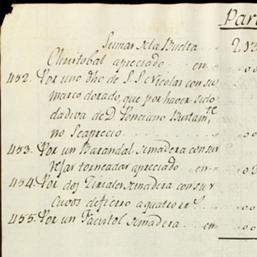 Par
Suma de la Buelta 2.13
Christobal apreciado en
452. Por uno dho de S. S. Nicolas con su
marco dorado, que por haver sido
dadiva de D. Ponciano Bustam.te
no se aprecio
453. Por un Barandal de madera con su
torneador apreciado en
454. Por dos de madera con sus
de fierro a quatro r.s
455. Por un Facistol de madera